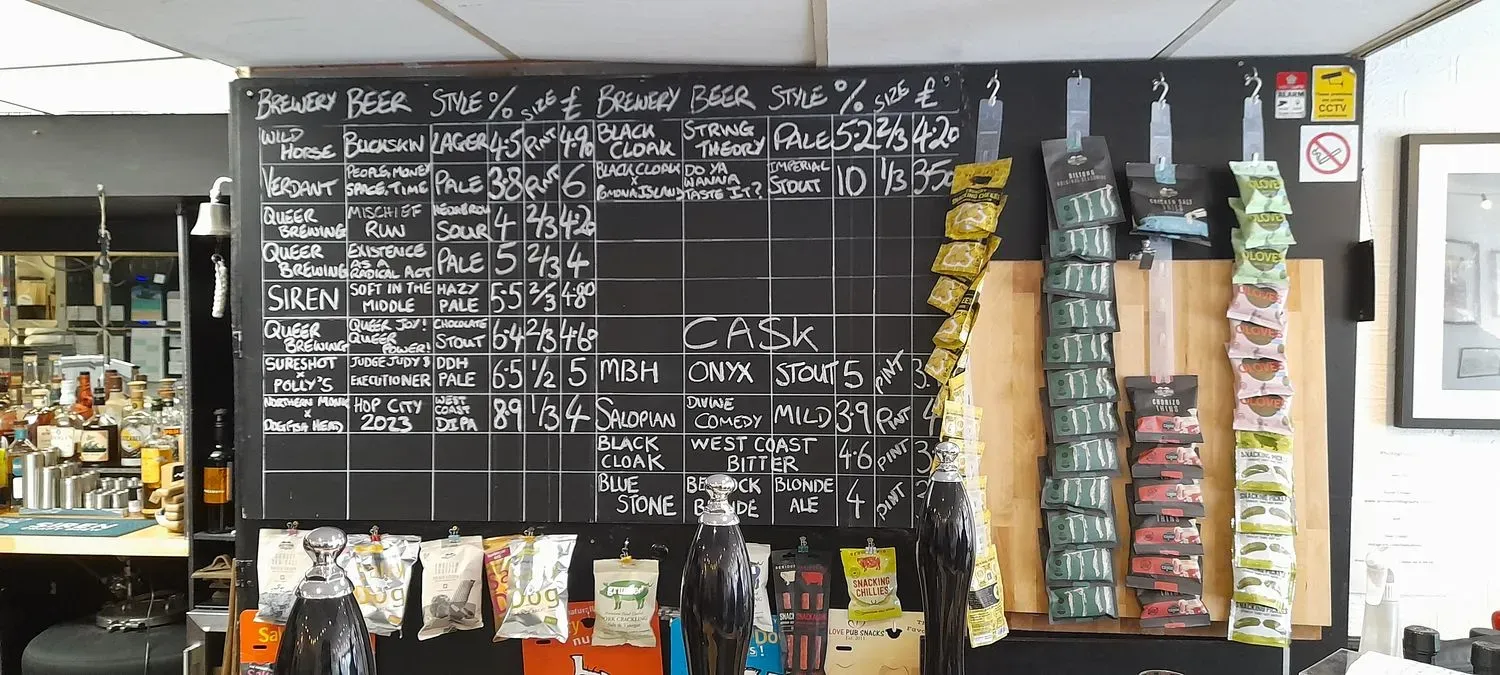 BREWERY BEER STYLE % SIZE £
WILD HORSE BUCKSKIN LAGER 4.5 PINT 4.90
VERDANT PEOPLE, MONEY SPACE, TIME PALE 3.8 PINT 6
QUEER BREWING MISCHIEF RUN SOUR 4 2/3 4.20
QUEER BREWING EXISTENCE AS A RADICAL ACT PALE 5 2/3 4
SIREN SOFT IN THE MIDDLE HAZY PALE 5.5 2/3 4.80
QUEER BREWING QUEER JOY! QUEER POWER! CHOCOLATE STOUT 6.4 2/3 4.60
SURESHOT x POLLY'S JUDGE JUDY & EXECUTIONER DDH PALE 6.5 1/2 5
NORTHERN MONK x DOGFISH HEAD HOP CITY 2023 WEST COAST DIPA 8.9 1/3 4
BREWERY BEER STYLE % SIZE £
BLACK CLOAK STRING THEORY PALE 5.2 2/3 4.20
BLACK CLOAK x POMONA ISLAND DO YA WANNA TASTE IT? IMPERIAL STOUT 10 1/3 3.50
CASK
MBH ONYX STOUT 5 PINT 3.
SALOPIAN DIVINE COMEDY MILD 3.9 PINT 4
BLACK CLOAK WEST COAST BITTER 4.6 PINT 3
BLUE STONE ALE BLONDE 4 PINT
ALARM
CCTV
BILTONG
CHORIZO THINS
OLOVES
OLOVES
OLOVES
OLOVES
OLOVES
OLOVES
OLOVES
SNACKING PICKLES
SIREN
SNACKING CHILLIES
LOVE PUB SNACKS
PORK CRACKLING